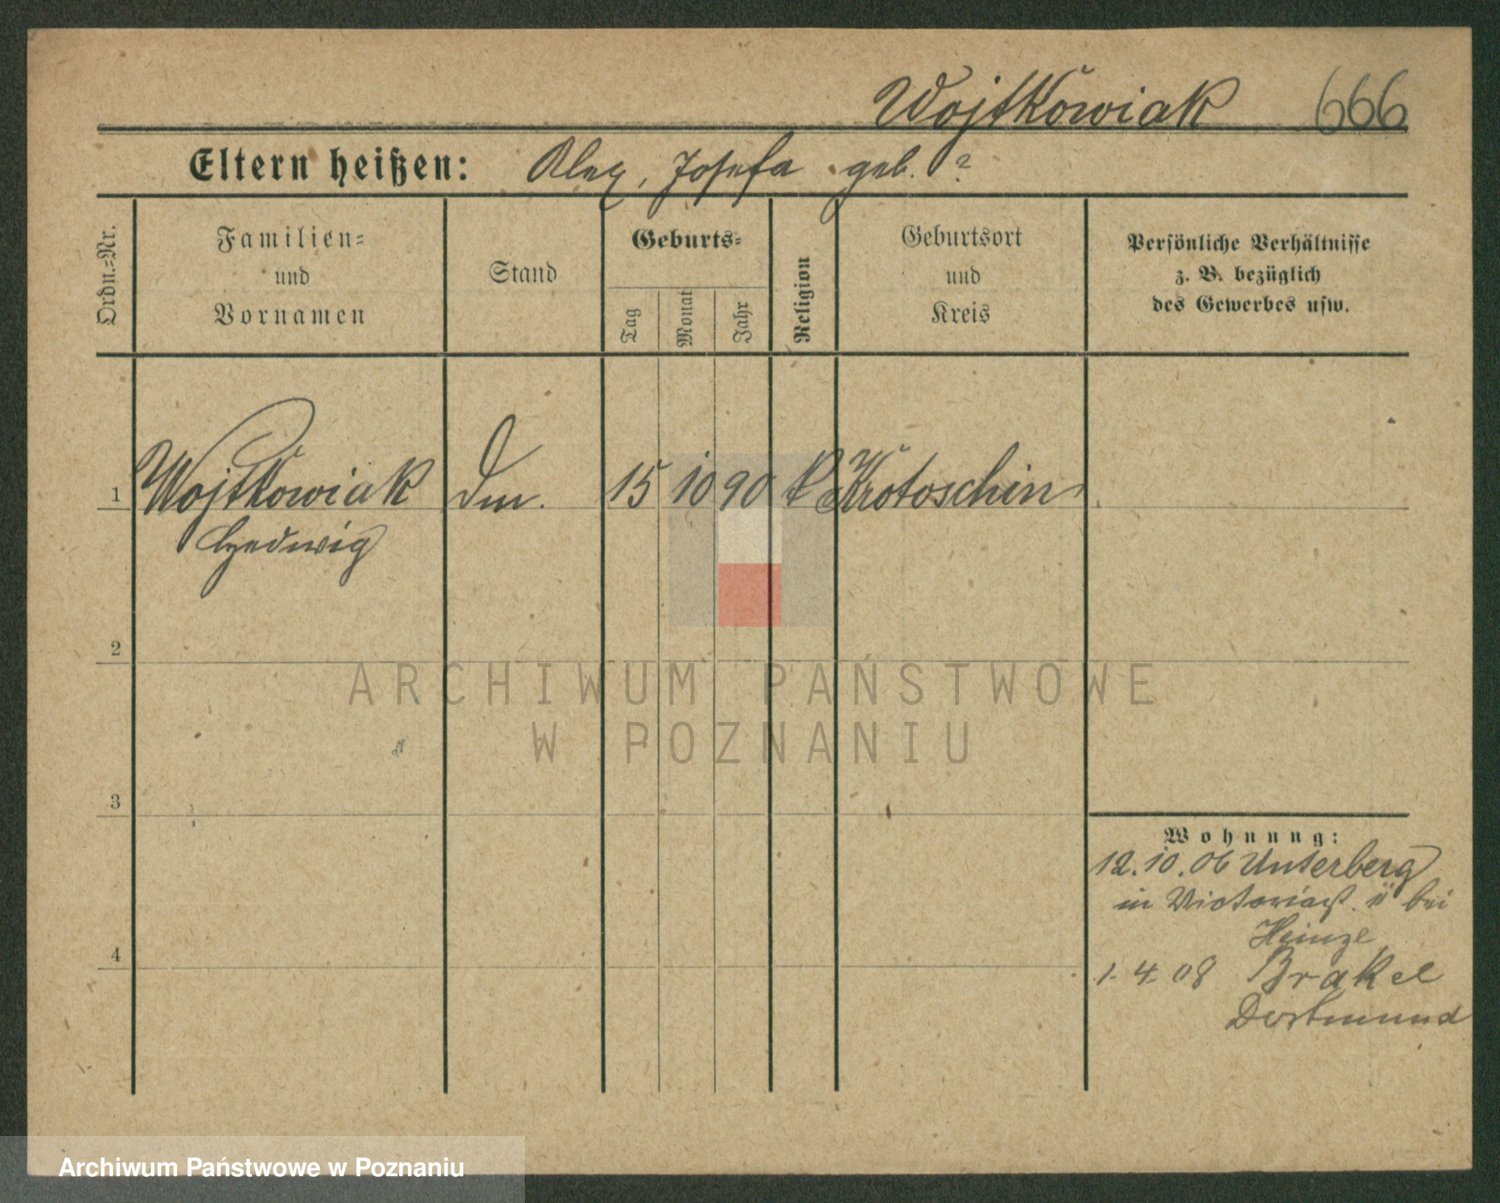 Wojtkowiak 666
Eltern heißen: Alex, Josefa geb. ?
Ordn.-Nr.
Familien-
und
Vornamen
Stand
Geburts-
Tag
Monat
Jahr
Religion
Geburtsort
und
Kreis
Persönliche Verhältnisse
z. B. bezüglich
des Gewerbes usw.
1 Wojtkowiak 15 10 90 k Krotoschin
Hedwig
2
3
4
Wohnung:
12.10.06 Unterberg
in bei
Heinze
1.4.08 Brakel
Dortmund
ARCHIWUM PAŃSTWOWE
W POZNANIU
Archiwum Państwowe w Poznaniu